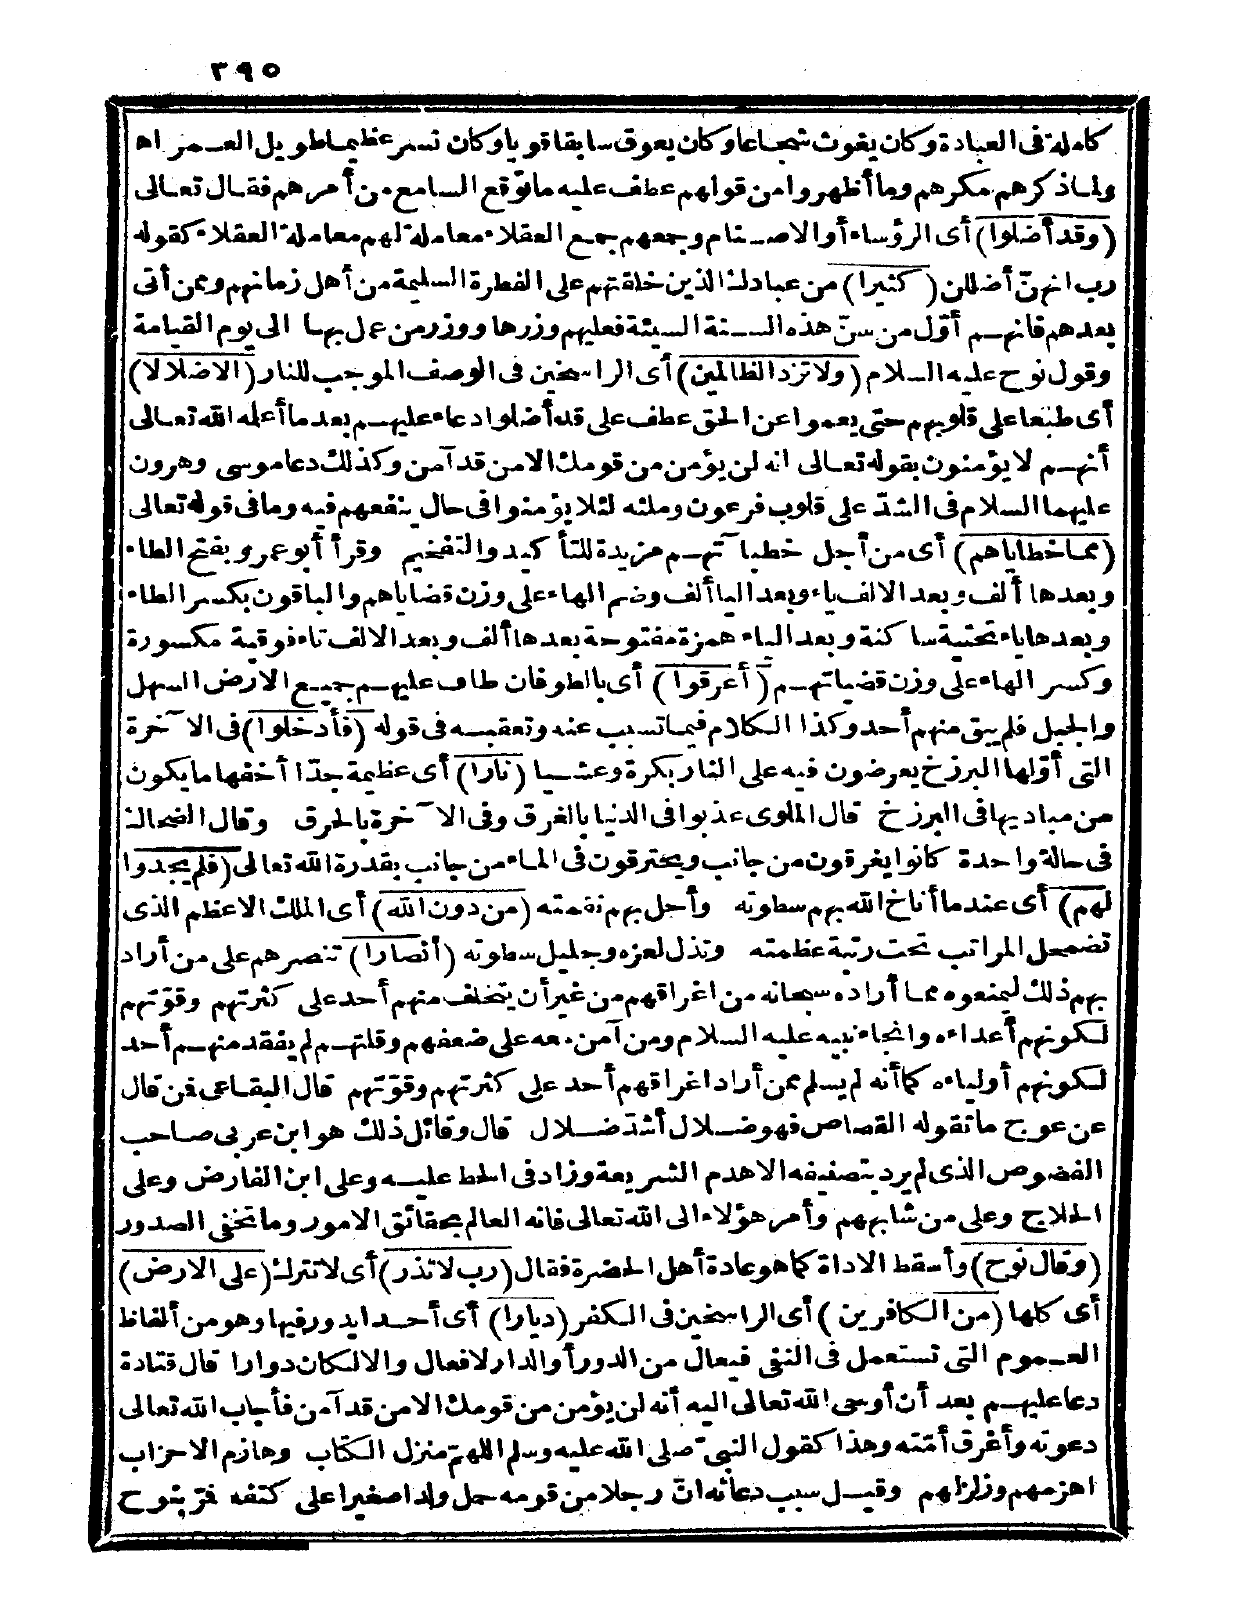 ٣٩٥
كاملة فى العبادة وكان يغوث شجاعا وكان يعوق سابقا قويا وكان نسر عظيما طويل العمر اه
ولماذكرهم مكرهم وما أظهروا من قولهم عطف عليه ما توقع السامع من أمرهم فقال تعالى
(وقد أضلوا) أى الرؤساء أو الاصنام وجمعهم جمع العقلاء معاملة لهم معاملة العقلاء كقوله
رب انهنّ أضللن (كثيرا) من عبادك الذين خلقتهم على الفطرة السليمة من أهل زمانهم وممن أتى
بعدهم فانهم أوّل من سنّ هذه السنة السيئة فعليهم وزرها ووزر من عمل بها الى يوم القيامة
وقول نوح عليه السلام (ولا تزد الظالمين) أى الراسخين فى الوصف الموجب للنار (الاضلالا)
أى طبعا على قلوبهم حتى يعموا عن الحق عطف على قد أضلوا دعاء عليهم بعد ما أعلمه الله تعالى
أنهم لا يؤمنون بقوله تعالى انه لن يؤمن من قومك الا من قد آمن وكذلك دعا موسى وهرون
عليهما السلام فى الشدّ على قلوب فرعون وملئه لئلا يؤمنوا فى حال ينفعهم فيه وما فى قوله تعالى
(مما خطاياهم) أى من أجل خطيآتهم مزيدة للتأكيد والتفخيم وقرأ أبو عمرو بفتح الطاء
وبعدها ألف وبعد الالف ياء وبعد اليا ألف وضم الهاء على وزن قضاياهم والباقون بكسر الطاء
وبعدها ياء تحتية ساكنة وبعد الياء همزة مفتوحة بعدها ألف وبعد الالف تاء فوقية مكسورة
وكسر الهاء على وزن قضياتهم (أغرقوا) أى بالطوفان طاف عليهم جميع الارض السهل
والجبل فلم يبق منهم أحد وكذا الكلام فيما تسبب عنه وتعقبه فى قوله (فأدخلوا) فى الآخرة
التى أوّلها البرزخ يعرضون فيه على النار بكرة وعشيا (نارا) أى عظيمة جدّا أخفها ما يكون
من مباديها فى البرزخ قال الملوى عذبوا فى الدنيا بالغرق وفى الآخرة بالحرق وقال الضحاك
فى حالة واحدة كانوا يغرقون من جانب ويحترقون فى الماء من جانب بقدرة الله تعالى (فلم يجدوا
لهم) أى عندما أناخ الله بهم سطوته وأحل بهم نقمته (من دون الله) أى الملك الاعظم الذى
تضمحل المراتب تحت رتبة عظمته وتذل لعزه وجليل سطوته (أنصارا) تنصرهم على من أراد
بهم ذلك ليمنعوه مما أراده سبحانه من اغراقهم من غير أن يتخلف منهم أحد على كثرتهم وقوّتهم
لكونهم أعداءه وانجاء نبيه عليه السلام ومن آمن معه على ضعفهم وقلتهم لم يفقد منهم أحد
لكونهم أولياءه كما أنه لم يسلم ممن أراد اغراقهم أحد على كثرتهم وقوّتهم قال البقاعى فمن قال
عن عوج ما تقوله القصاص فهو ضلال أشدّ ضلال قال وقائل ذلك هو ابن عربى صاحب
الفصوص الذى لم يرد بتصنيفه الا هدم الشريعة وزاد فى الحط عليه وعلى ابن الفارض وعلى
الحلاج وعلى من شابههم وأمر هؤلاء الى الله تعالى فانه العالم بحقائق الامور وما تخفى الصدور
(وقال نوح) وأسقط الاداة كما هو عادة أهل الحضرة فقال (رب لا تذر) أى لا تترك (على الارض)
أى كلها (من الكافرين) أى الراسخين فى الكفر (ديارا) أى أحدا يدور فيها وهو من ألفاظ
العموم التى تستعمل فى النفى فيعال من الدور أو الدار لا فعال والا لكان دوارا قال قتادة
دعا عليهم بعد أن أوحى الله تعالى اليه أنه لن يؤمن من قومك الا من قد آمن فأجاب الله تعالى
دعوته وأغرق أمّته وهذا كقول النبىّ صلى الله عليه وسلم اللهمّ منزل الكتاب وهازم الاحزاب
اهزمهم وزلزلهم وقيل سبب دعائه انّ رجلا من قومه حمل ولدا صغيرا على كتفه فمرّ بنوح